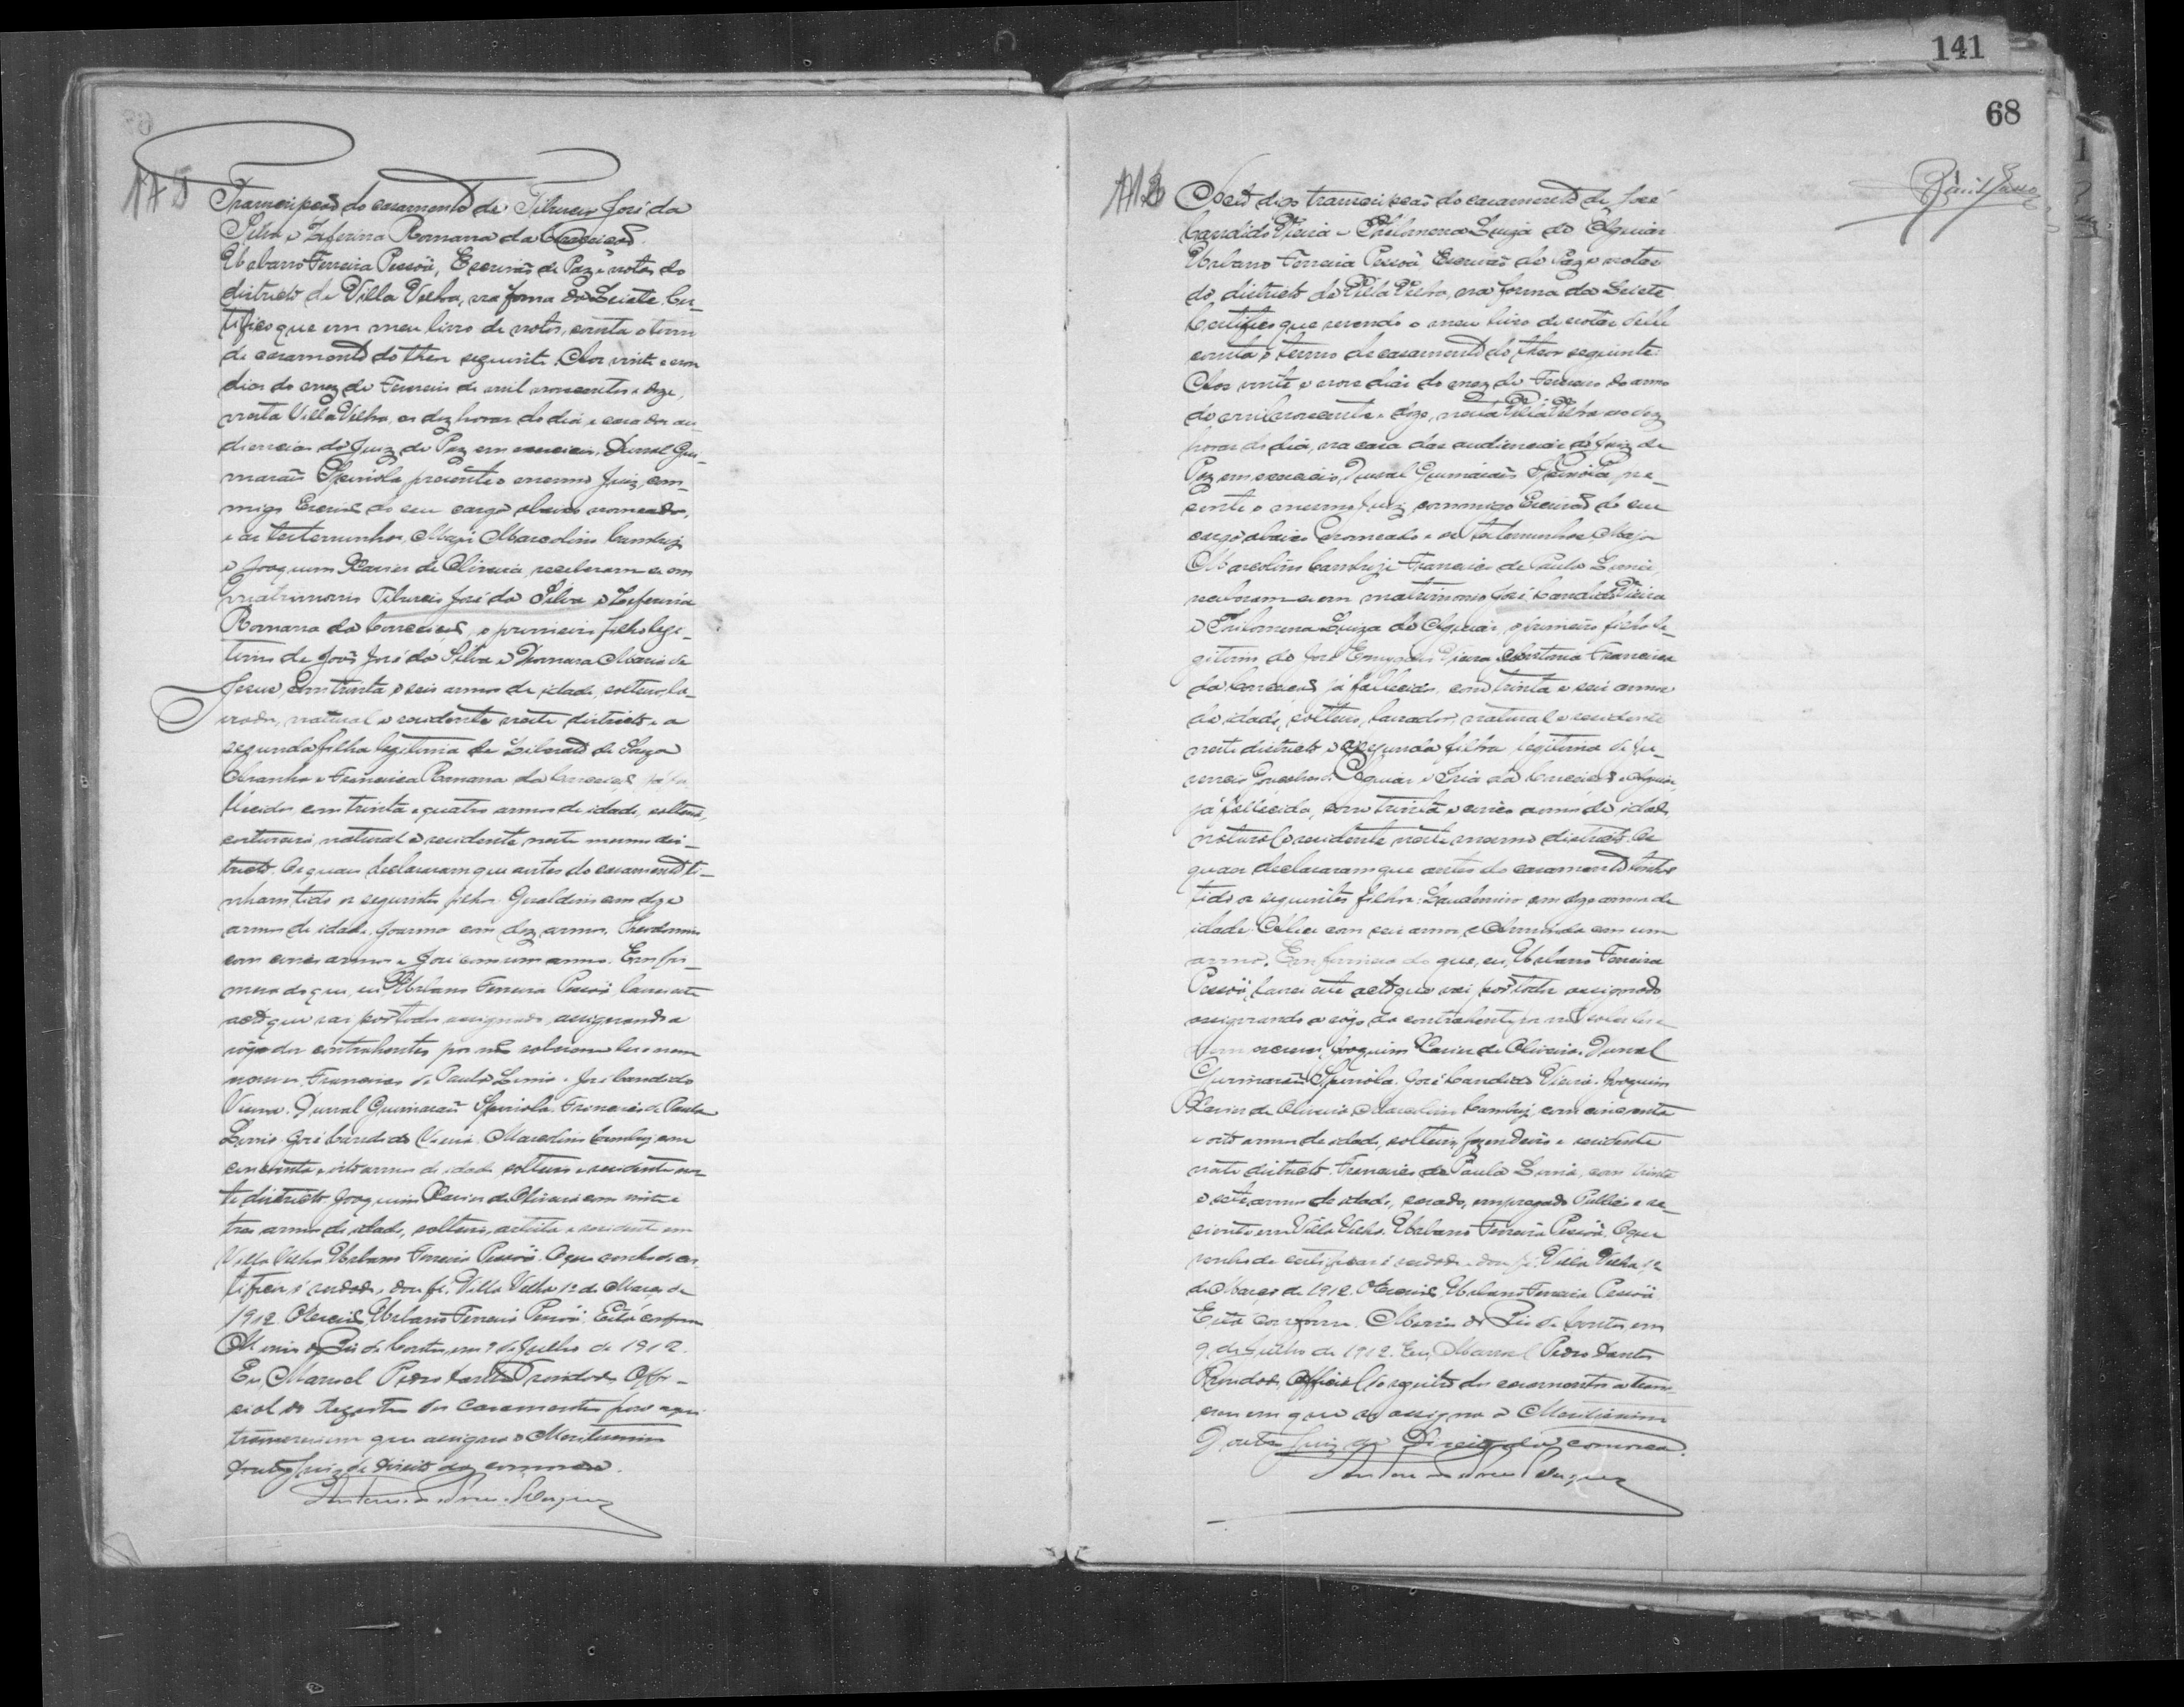 141
68
Transcripção do casamento de Tiburcio José da
Silva e Zeferina Romana da Conceição.
Urbano Ferreira Pessôa, Escrivão de Paz e notas do
districto de Villa Velha, na forma da Lei etc. Cer-
tifico que em meu livro de notas, consta o termo
de casamento do theor seguinte. Aos vinte e nove
dias do mez de Fevereiro de mil novecentos e doze,
nesta Villa Velha, as dez horas do dia e casa das au-
diencias do Juiz de Paz em exercicio, Durval Gui-
marães Spinola, presente o mesmo Juiz, com-
migo Escrivão do seu cargo abaixo nomeado,
e as testemunhas, Major Marcolino
e Joaquim Xavier de Oliveira, receberam-se em
matrimonio Tiburcio José da Silva e Zeferina
Romana da Conceição, o primeiro filho legi-
timo de João José da Silva e Maria de
Jesus, com trinta e seis annos de idade, solteiro, la-
vrador, natural e residente neste districto e a
segunda filha legitima de Liberato de Souza
Aranha e Francisca Romana da Conceição, já fal-
lecidos com trinta e quatro annos de idade, solteira,
costureira, natural e residente neste mesmo dis-
tricto. Os quaes declararam que antes do casamento ti-
nham tido os seguintes filhos: Geraldino com doze
annos de idade, com dez annos,
com cinco annos e José com um anno. Em fir-
meza do que, eu, Urbano Ferreira Pessôa, lavrei este
acto que vai por todos assignado, assignando a
rogo dos contrahentes por não saberem ler e nem
escrever, Francisco de Paula . José Candido
Vieira. Durval Guimarães Spinola. Francisco de Paula
José Candido Vieira. Marcolino com
cincoenta e oito annos de idade, solteiro e residente nes-
te districto. Joaquim Xavier de Oliveira com vinte e
tres annos de idade, solteiro, artista e residente em
Villa Velha. Urbano Ferreira Pessôa. O que
é verdade, dou fé. Villa Velha 12 de Março de
1912. O Escrivão, Urbano Ferreira Pessôa. Está conforme
Minas do Rio de Contas, em 9 de Julho de 1912.
Eu, Manoel Pedro Dantas Trindade, Offi-
cial do Registro dos Casamentos para aqui
transcrevi em que assigna o Meritissimo
Doutor Juiz de Direito da comarca.
Acto digo transcripção do casamento de José
Candido Vieira e Philomena Luiza de Aguiar
Urbano Ferreira Pessôa, Escrivão de Paz e notas
do districto de Villa Velha, na forma da Lei etc
Certifico que revendo o meu livro de notas delle
consta o termo de casamento do theor seguinte:
Aos vinte e nove dias do mez de Fevereiro do anno
de mil novecentos e doze, nesta Villa Velha as dez
horas do dia, na casa das audiencias do Juiz de
Paz em exercicio, Durval Guimarães Spinola, pre-
sente o mesmo Juiz, commigo Escrivão de seu
cargo abaixo nomeado e as testemunhas, Major
Marcolino Francisco de Paula
receberam-se em matrimonio José Candido Vieira
e Philomena Luiza de Aguiar, o primeiro filho le-
gitimo de José Vieira e Francisca
da Conceição, já fallecidos, com trinta e seis annos
de idade, solteiro, lavrador, natural e residente
neste districto e a segunda filha legitima de
de Aguiar e da Conceição e Aguiar,
já fallecida, com trinta e cinco annos de idade,
natural e residente neste mesmo districto. Os
quaes declararam que antes do casamento tinham
tido os seguintes filhos: com doze annos de
idade, com seis annos, e com um
anno. Em firmeza do que, eu, Urbano Ferreira
Pessôa, lavrei este acto que vai por todos assignado
assignando a rogo da contrahente por não saber ler e
nem escrever, Joaquim Xavier de Oliveira. Durval
Guimarães Spinola. José Candido Vieira. Joaquim
Xavier de Oliveira. Marcolino com cincoenta
e oito annos de idade, solteiro, fazendeiro e residente
neste districto. Francisco de Paula com trinta
e sete annos de idade, casado, empregado Publico e re-
sidente em Villa Velha. Urbano Ferreira Pessôa. O que
é verdade, dou fé. Villa Velha 12
de Março de 1912. O Escrivão, Urbano Ferreira Pessôa.
Está conforme. Minas do Rio de Contas, em
9 de Julho de 1912. Eu, Manoel Pedro Dantas
Trindade, Official do registro dos casamentos a trans-
crevi em que assigna o Meritissimo
Doutor Juiz de Direito da comarca.